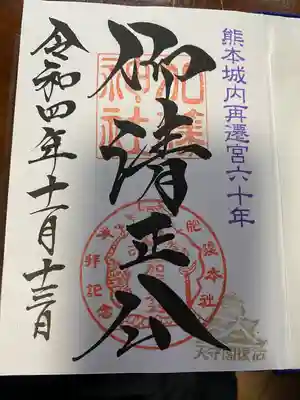 熊本城内再遷宮六十年
加藤神社
仰清正公
参拝記念
令和四年十一月十三日
天守閣復旧